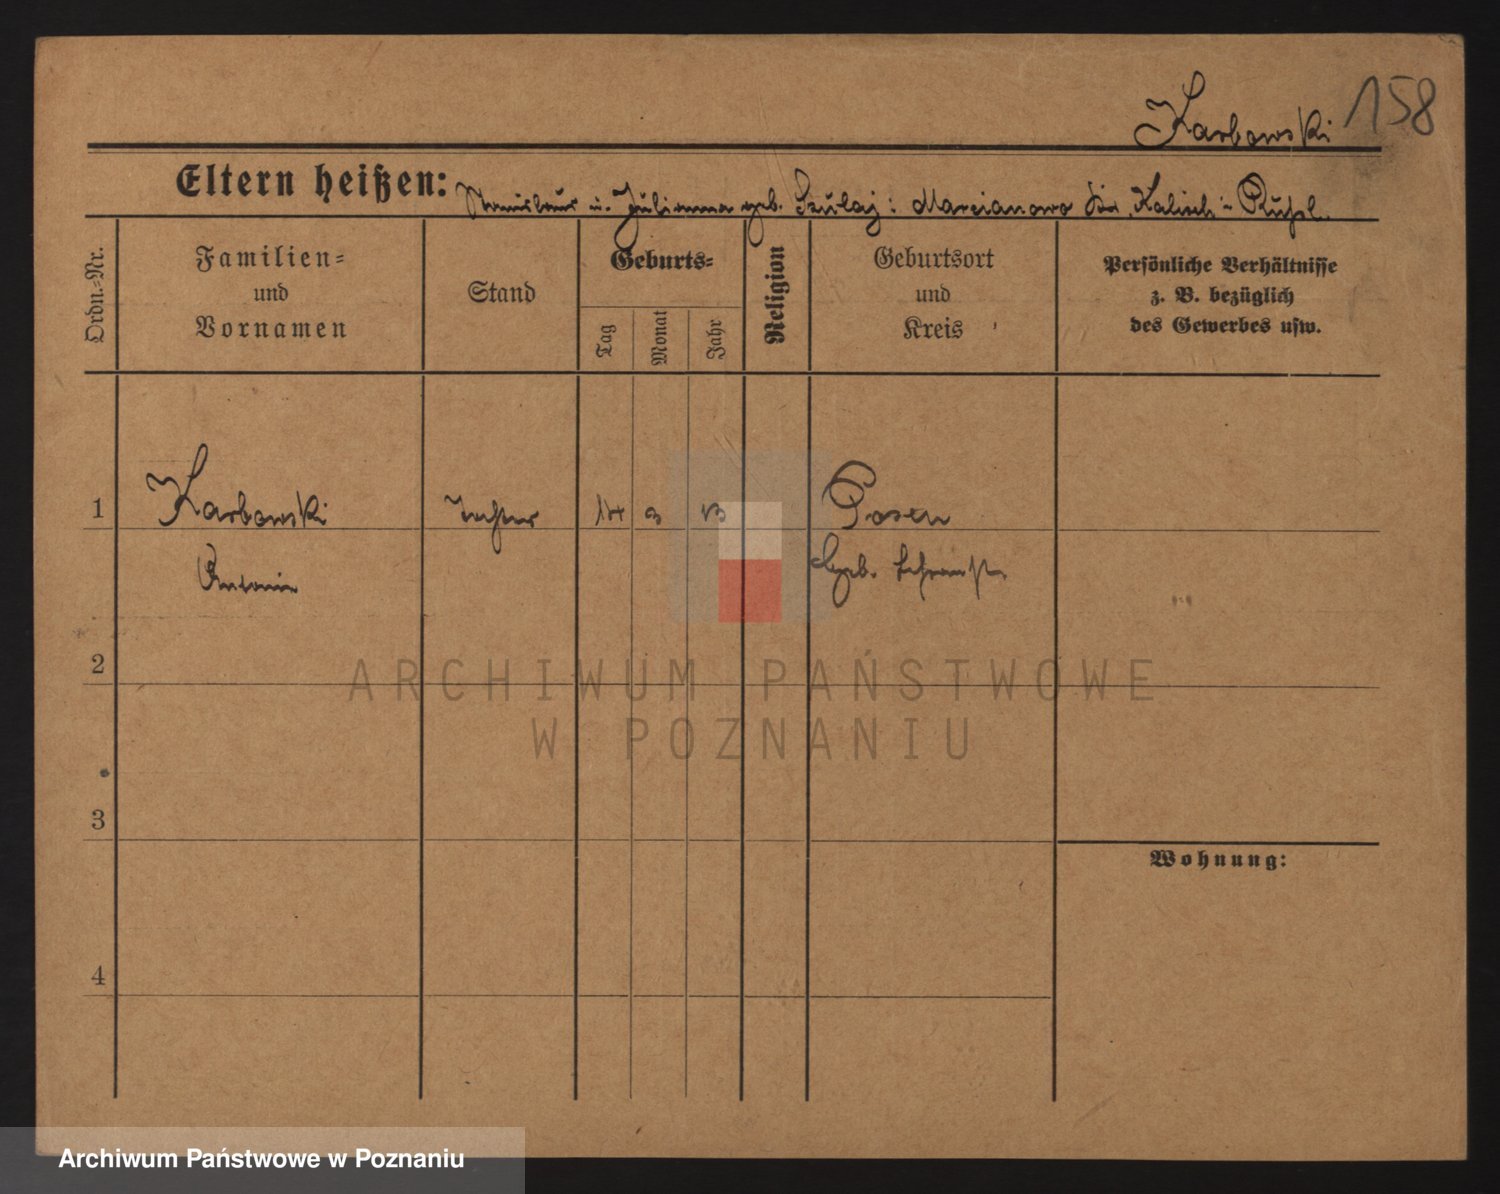 Karbowski 158
Eltern heißen: Stanislaus u. Julianna geb. Szulaj: Marcianowo Kalisch Rußl.
Ordn.-Nr.
Familien-
und
Vornamen
Stand
Geburts-
Tag
Monat
Jahr
Religion
Geburtsort
und
Kreis
Persönliche Verhältnisse
z. B. bezüglich
des Gewerbes usw.
1 Karbowski Tochter 14 3 13 Posen
Antonie Geb.
2
ARCHIWUM PAŃSTWOWE
W POZNANIU
3
Wohnung:
4
Archiwum Państwowe w Poznaniu